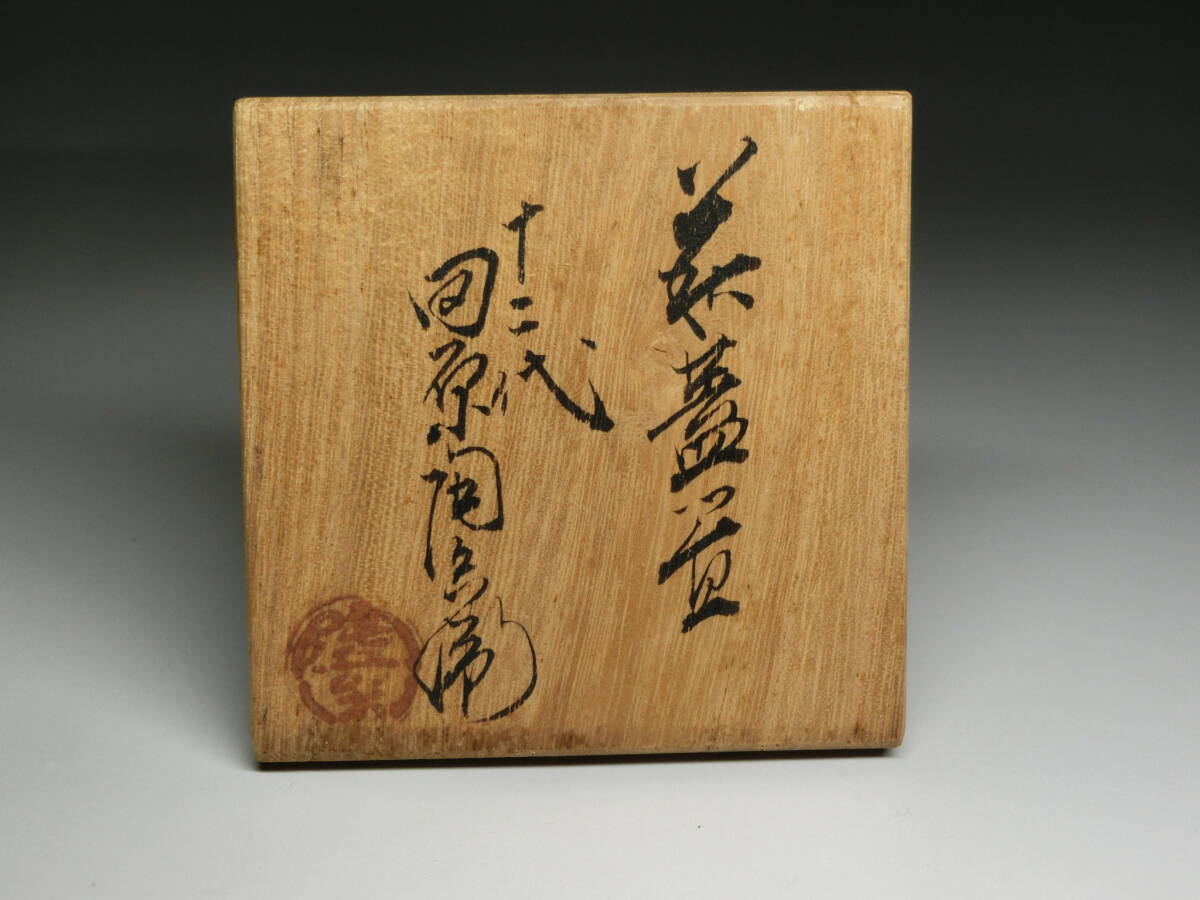 萩蓋置
十二代
田原陶兵衛